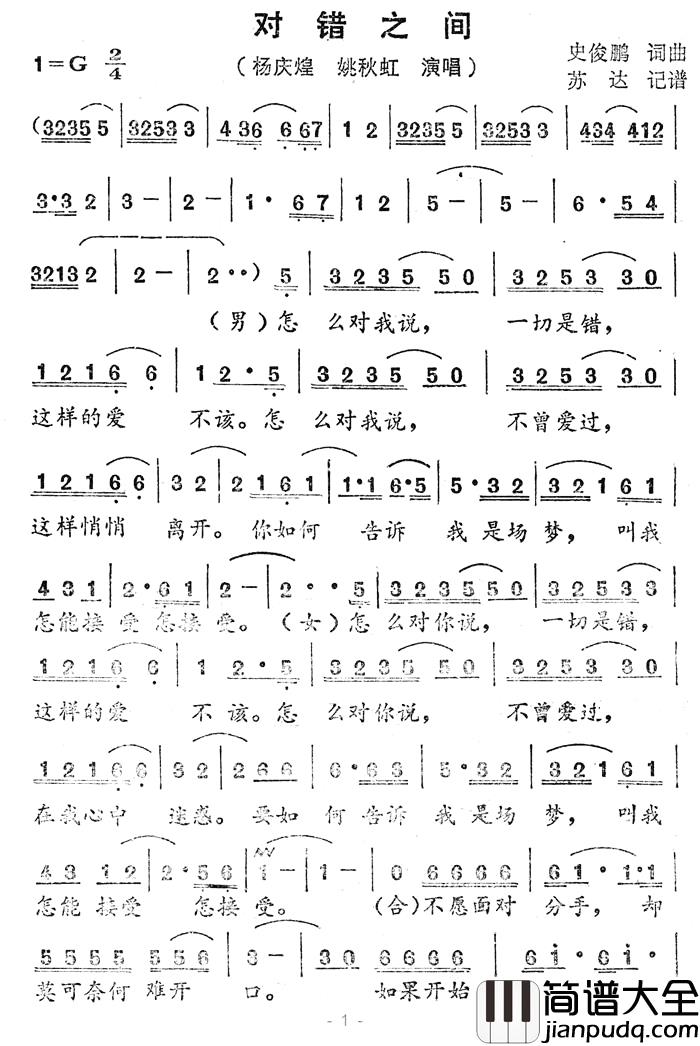 对错之间
1=G 2/4
（杨庆煌 姚秋虹 演唱）
史俊鹏 词曲
苏达 记谱
(32355 | 32533 | 436 667 | 1 2 | 32355 | 32533 | 434 412 |
3·3 2 | 3 - | 2 - | 1· 67 | 1 2 | 5 - | 5 - | 6· 54 |
32132 | 2 - | 2··) 5 | 3235 50 | 3253 30 |
（男）怎 么对我说， 一切是错，
1216 6 | 12· 5 | 3235 50 | 3253 30 |
这样的爱 不该。怎 么对我说， 不曾爱过，
12166 | 32 | 2161 | 1·1 6·5 | 5·32 | 321 61 |
这样悄悄 离开。你如何 告诉 我是场梦，叫我
431 | 2·61 | 2- | 2·· 5 | 323550 | 32533 |
怎能接受怎接受。（女）怎么对你说， 一切是错，
1216 6 | 1 2·5 | 3235 50 | 3253 30 |
这样的爱 不该。怎 么对你说， 不曾爱过，
12166 | 32 | 266 | 6·63 | 5·32 | 321 61 |
在我心中 迷惑。要如何告诉我是场梦，叫我
43 12 | 2·56 | 1- | 1- | 0 6666 | 61· 1·1 |
怎能接受 怎接受。 （合）不愿面对 分手，却
5555 556 | 3- | 30 6666 | 61· 61· |
莫可奈何难开 口。 如果开始
- 1 -
简谱大全
jianpudq.com